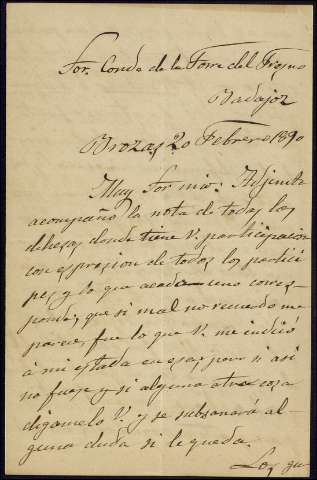 Sor. Conde de la Torre del Fresno
Badajoz
Brozas 20 Febrero 1890
Muy Sor mio: Adjunta
acompaño la nota de todas las
dehesas donde tiene V. participacion
con espresion de todos los partici
pes, y lo que acada uno corres-
ponde, que si mal no recuerdo me
parece fue lo que V. me indicó
á mi estada en esa, pero si asi
no fuese y si alguna otra cosa
digamelo V. y se subsanará al-
guna duda si le queda.
Los gu